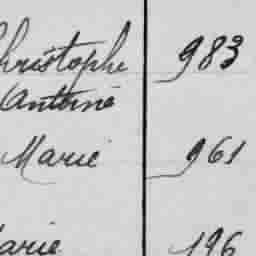 Christophe 983
Antoine
Marie 961
Marie 196